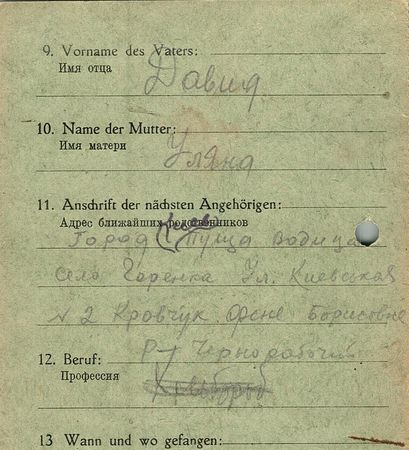 9. Vorname des Vaters:
Имя отца
Давид
10. Name der Mutter:
Имя матери
Уляна
11. Anschrift der nächsten Angehörigen:
Адрес ближайших родственников
Киев
Город Пуща Водица
село Горенка Ул. Киевская
№ 2 Кровчук Фене Борисовне
12. Beruf:
Профессия
Чернорабочий
13 Wann und wo gefangen: